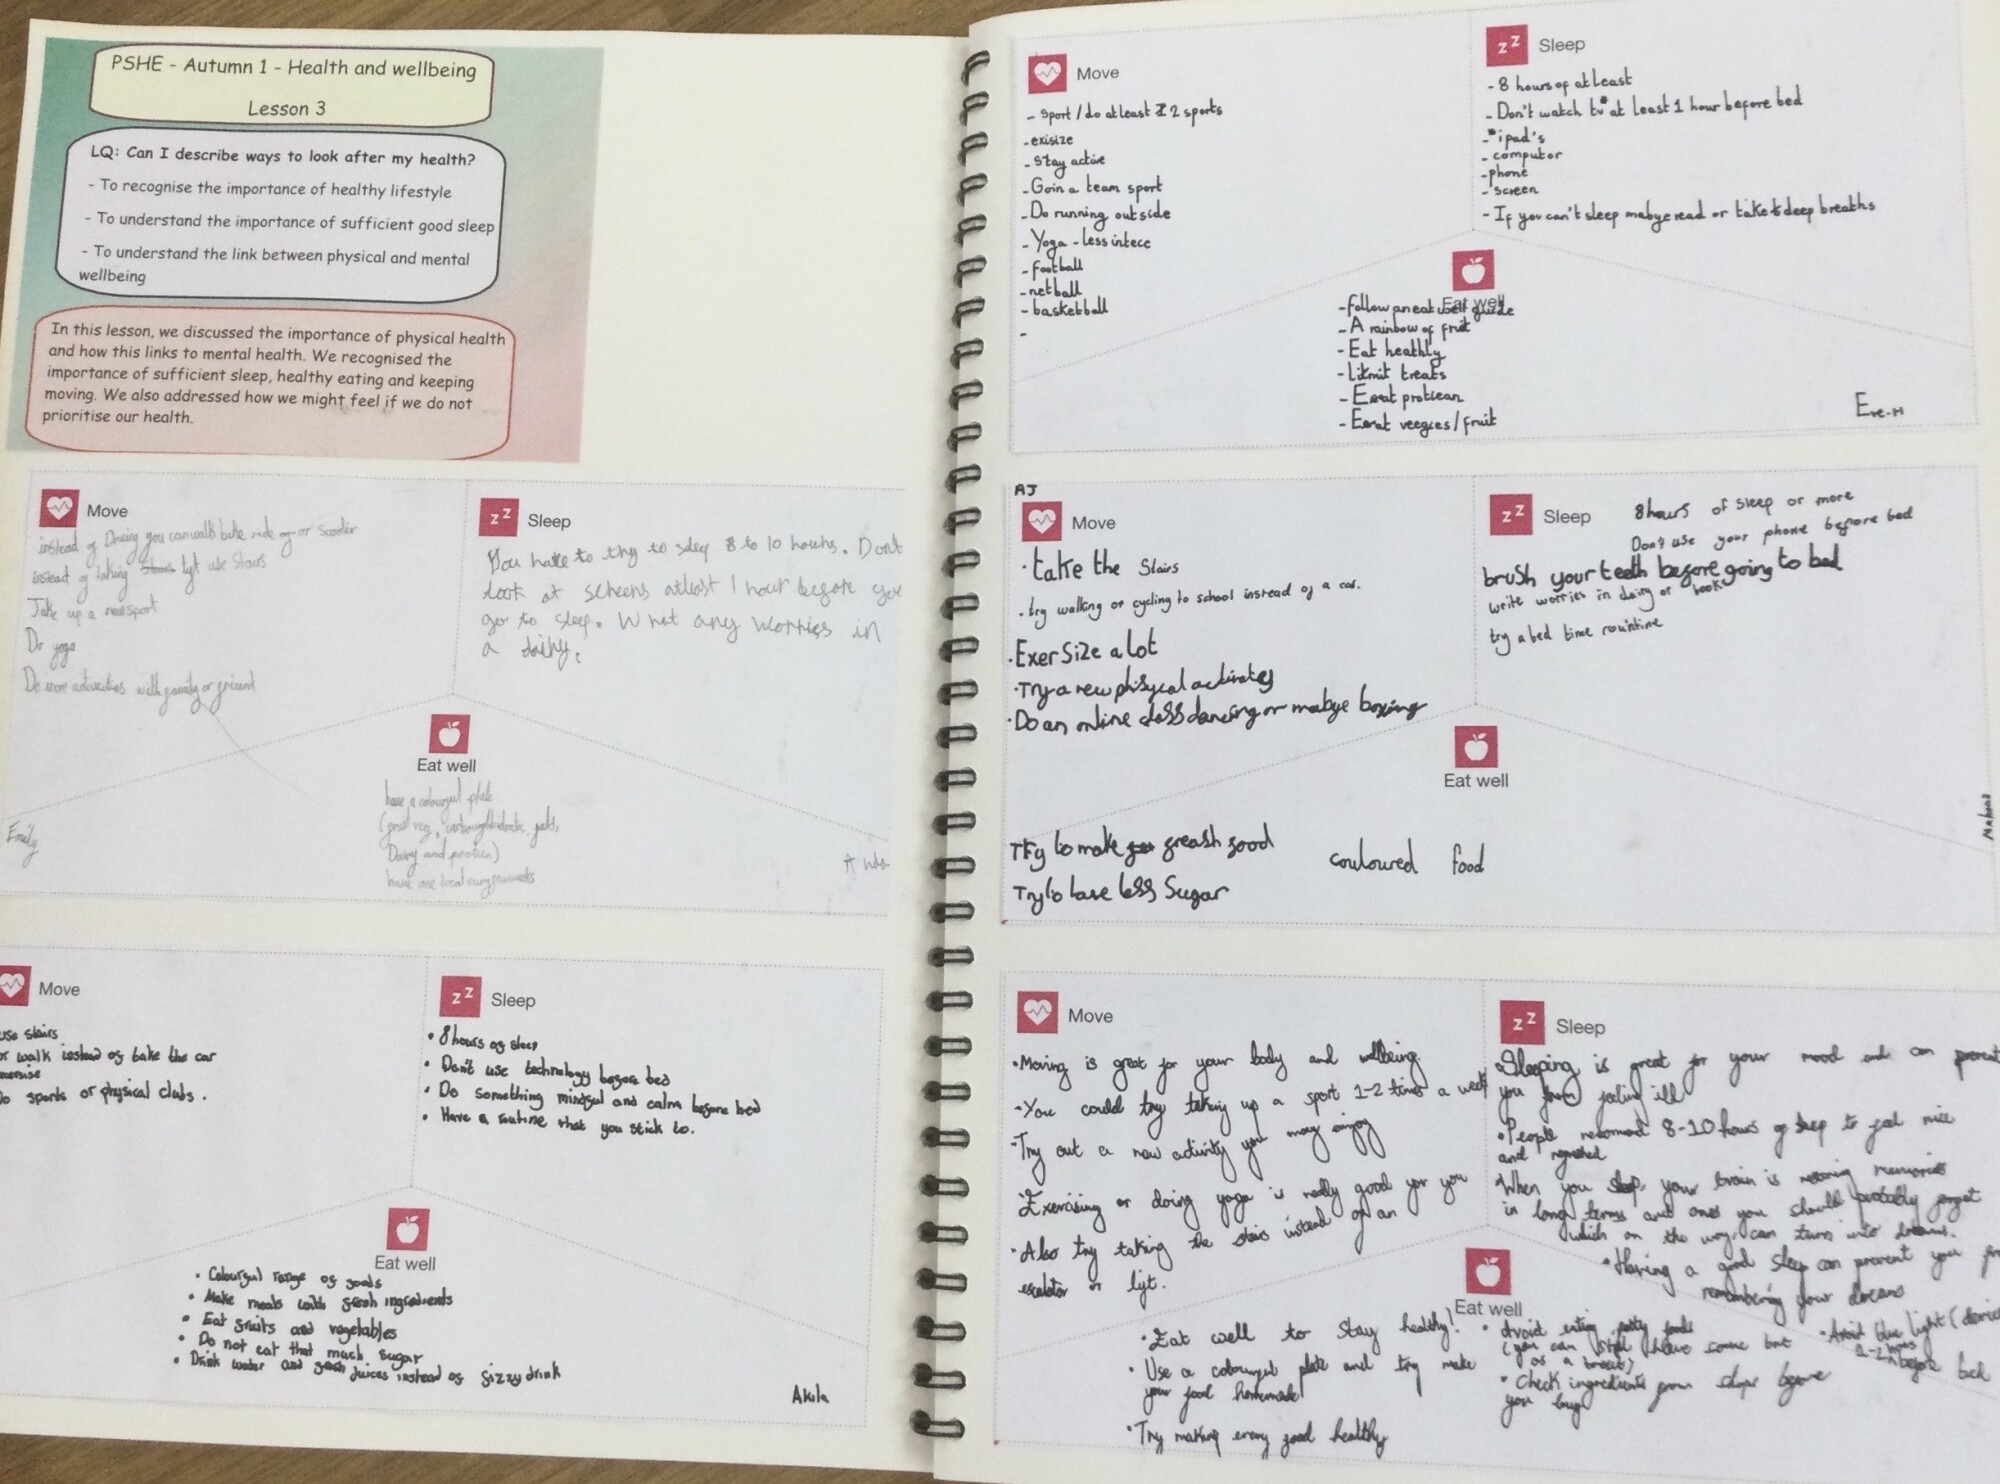 PSHE - Autumn 1 - Health and wellbeing
Lesson 3
LQ: Can I describe ways to look after my health?
- To recognise the importance of healthy lifestyle
- To understand the importance of sufficient good sleep
- To understand the link between physical and mental
wellbeing
In this lesson, we discussed the importance of physical health
and how this links to mental health. We recognised the
importance of sufficient sleep, healthy eating and keeping
moving. We also addressed how we might feel if we do not
prioritise our health.
Move
instead of Driving you can walk bike ride or scooter
instead of taking lift use stairs
Take up a new sport
Do yoga
Do more activities with family or friend
Sleep
You have to try to sleep 8 to 10 hours. Dont
look at screens atleast 1 hour before you
go to sleep. Writ any worries in
a
Eat well
have a colourful plate
Dairy and protein)
have one treat
Emily
Move
use stairs
or walk instead of take the car
Do sports or physical clubs.
Sleep
• 8 hours of sleep
• Don't use technology before bed
• Do something mindful and calm before bed
• Have a routine that you stick to.
Eat well
• Colourful range of foods
• Make meals with fresh ingredients
• Eat fruits and vegetables
• Do not eat that much sugar
• Drink water and fresh juices instead of fizzy drink
Akila
Move
- Sport / do at least 2 sports
- exisize
- Stay active
- Goin a team sport
- Do running outside
- Yoga - less intece
- football
- netball
- basketball
-
Sleep
- 8 hours of at least
- Don't watch tv at least 1 hour before bed
- ipad's
- computor
- phone
- screen
- If you can't sleep mabye read or take deep breaths
Eat well
- follow an eat well guide
- A rainbow of fruit
- Eat heathly
- Limit treats
- Eat protiean
- Eat veegies / fruit
Eve-H
AJ
Move
• take the Stairs
• try walking or cycling to school instead of a car.
• ExerSize a lot
• Try a new phisycal activitey
• Do an online class dancing or mabye boxing
Sleep
8 hours of sleep or more
Don't use your phone before bed
brush your teeth before going to bed
write worries in dairy or book
try a bed time rouintine
Eat well
Try to make freash food
Try to have less Sugar
couloured food
Move
• Moving is great for your body and wellbeing.
• You could try taking up a sport 1-2 times a week
• Try out a new activity you may enjoy
• Exercising or doing yoga is really good for you
• Also try taking the stairs instead of an
escalator or lift.
Sleep
• Sleeping is great for your mood and can prevent
you from feeling ill
• People recomend 8-10 hours of sleep to feel nice
and refreshed
• When you sleep, your brain is memories
in long terms and ones you should probably forget
which on the way, can turn into dreams.
• Having a good sleep can prevent you
remembering your dreams
• Avoid blue light
1-2 hours
before bed
Eat well
• Eat well to stay healthy!
• Use a colourful plate and try make
your food homemade
• Try making every food healthy
• Avoid eating fatty foods
(you can still have some but
as a treat)
• Check ingredients from shops before
you buy